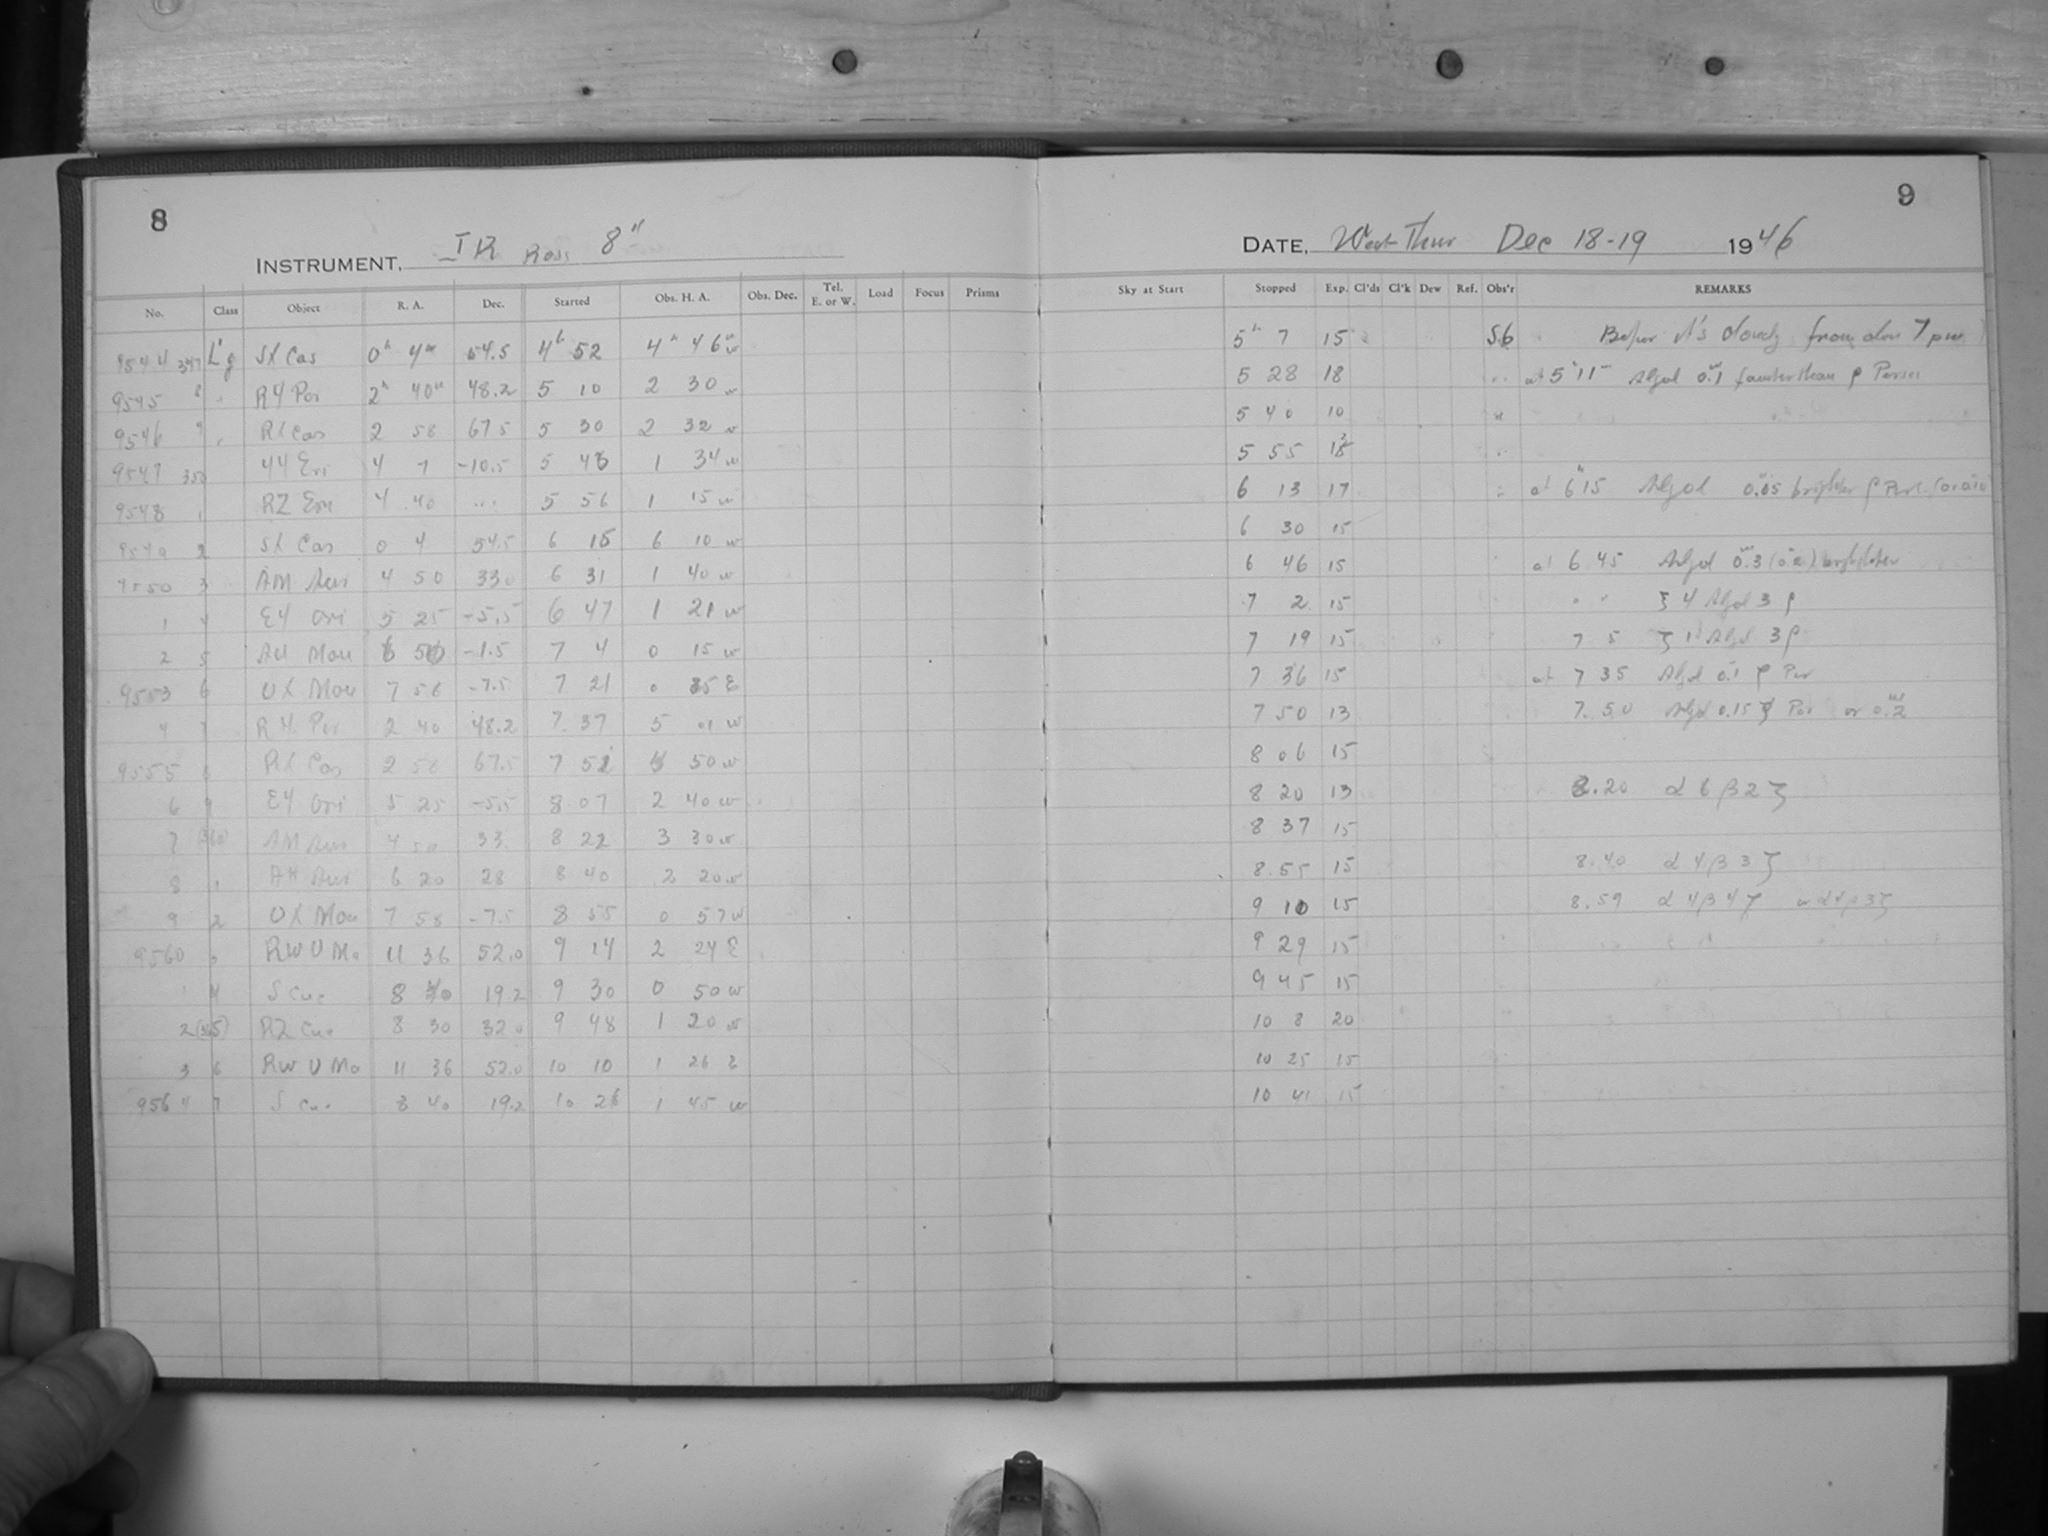 8
INSTRUMENT, IR Ross 8"
No. Class Object R. A. Dec. Started Obs. H. A. Obs. Dec. Tel. E. or W. Load Focus Prisms
9544 347 SX Cas 0h 4m 54.5 4h 52 4h 46m w
9545 8 RY Per 2h 40m 48.2 5 10 2 30 w
9546 9 RX Cas 2 58 67.5 5 30 2 32 w
9547 350 YY Eri 4 7 -10.5 5 45 1 34 w
9548 1 RZ Eri 4 40 5 56 1 15 w
9549 2 SX Cas 0 4 54.5 6 15 6 10 w
9550 3 AM Aur 4 50 33.0 6 31 1 40 w
1 4 EY Ori 5 25 -5.5 6 47 1 21 w
2 5 AU Mon 6 50 -1.5 7 4 0 15 w
9553 6 UX Mon 7 58 -7.5 7 21 0 35 E
4 7 RY Per 2 40 48.2 7.37 5 01 w
9555 8 RX Cas 2 58 67.5 7 52 50 w
6 9 EY Ori 5 25 -5.5 8 07 2 40 w
7 (360) AM Aur 4 50 33. 8 22 3 30 w
8 1 AH Aur 6 20 28 8 40 2 20 w
9 2 UX Mon 7 58 -7.5 8 55 0 57 w
9560 3 RW U Ma 11 36 52.0 9 14 2 24 E
1 4 S Cnc 8 40 19.2 9 30 0 50 w
2 (365) RZ Cnc 8 30 32.0 9 48 1 20 w
3 6 RW U Ma 11 36 52.0 10 10 1 26 E
9564 7 S Cnc 8 40 19.2 10 26 1 45 w
9
DATE, Wed-Thur Dec 18-19 1946
Sky at Start Stopped Exp. Cl'ds Cl'k Dew Ref. Obs'r REMARKS
5h 7 15 S.G cloudy from 7 pm
5 28 18 at 5h 11m Algol 0.1 fainter than ρ Persei
5 40 10
5 55 12
6 13 17 at 6h 15 Algol 0.05 brighter ρ Pers.
6 30 15
6 46 15 at 6 45 Algol 0.3 brighter
7 2 15 " " ξ 4 Algol 3 ρ
7 19 15 7 5 ζ 1 Algol 3 ρ
7 36 15 at 7 35 Algol 0.1 ρ Per
7 50 13 7.50 Algol 0.15 Per or 0.2
8 06 15
8 20 13 8.20 α 6 β 2 ζ
8 37 15
8.55 15 8.40 α 4 β 3 ζ
9 10 15 8.59 α 4 β 4 ζ or α 4 β 3 ζ
9 29 15
9 45 15
10 8 20
10 25 15
10 41 15